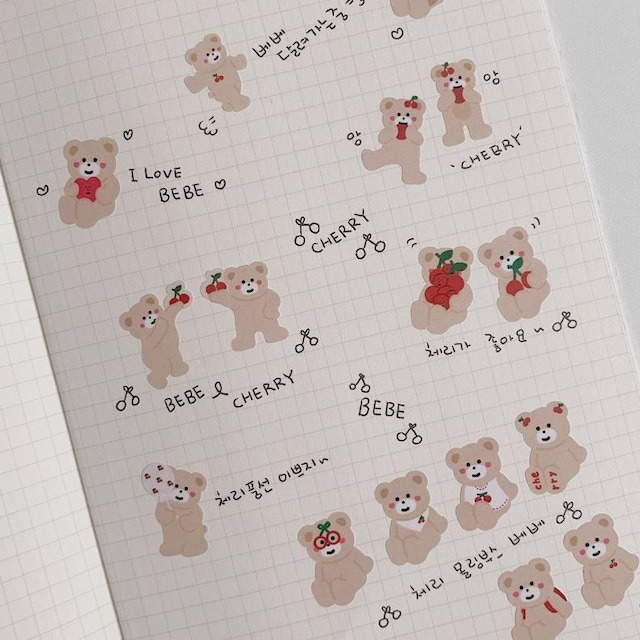 베베
달려가는중
앙
앙
'CHERRY'
I LOVE
BEBE
CHERRY
체리가 좋아요~
BEBE & CHERRY
BEBE
체리풍선 이쁘지~
che
rry
체리 몰링밧 베베